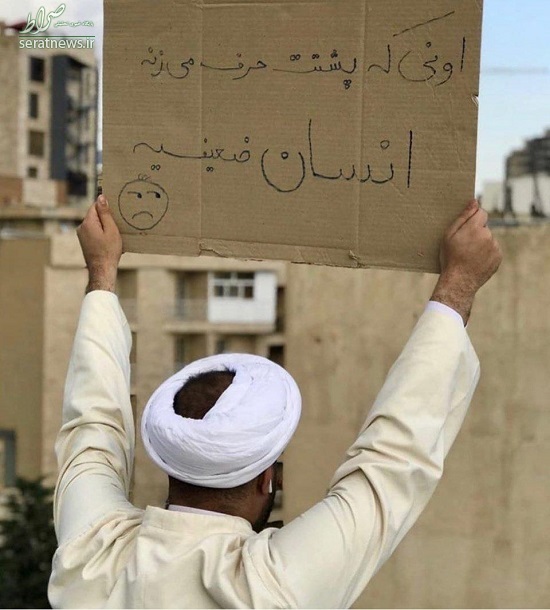 صراط
seratnews.ir
اونی که پشتت حرف می زنه
انسان ضعیفیه